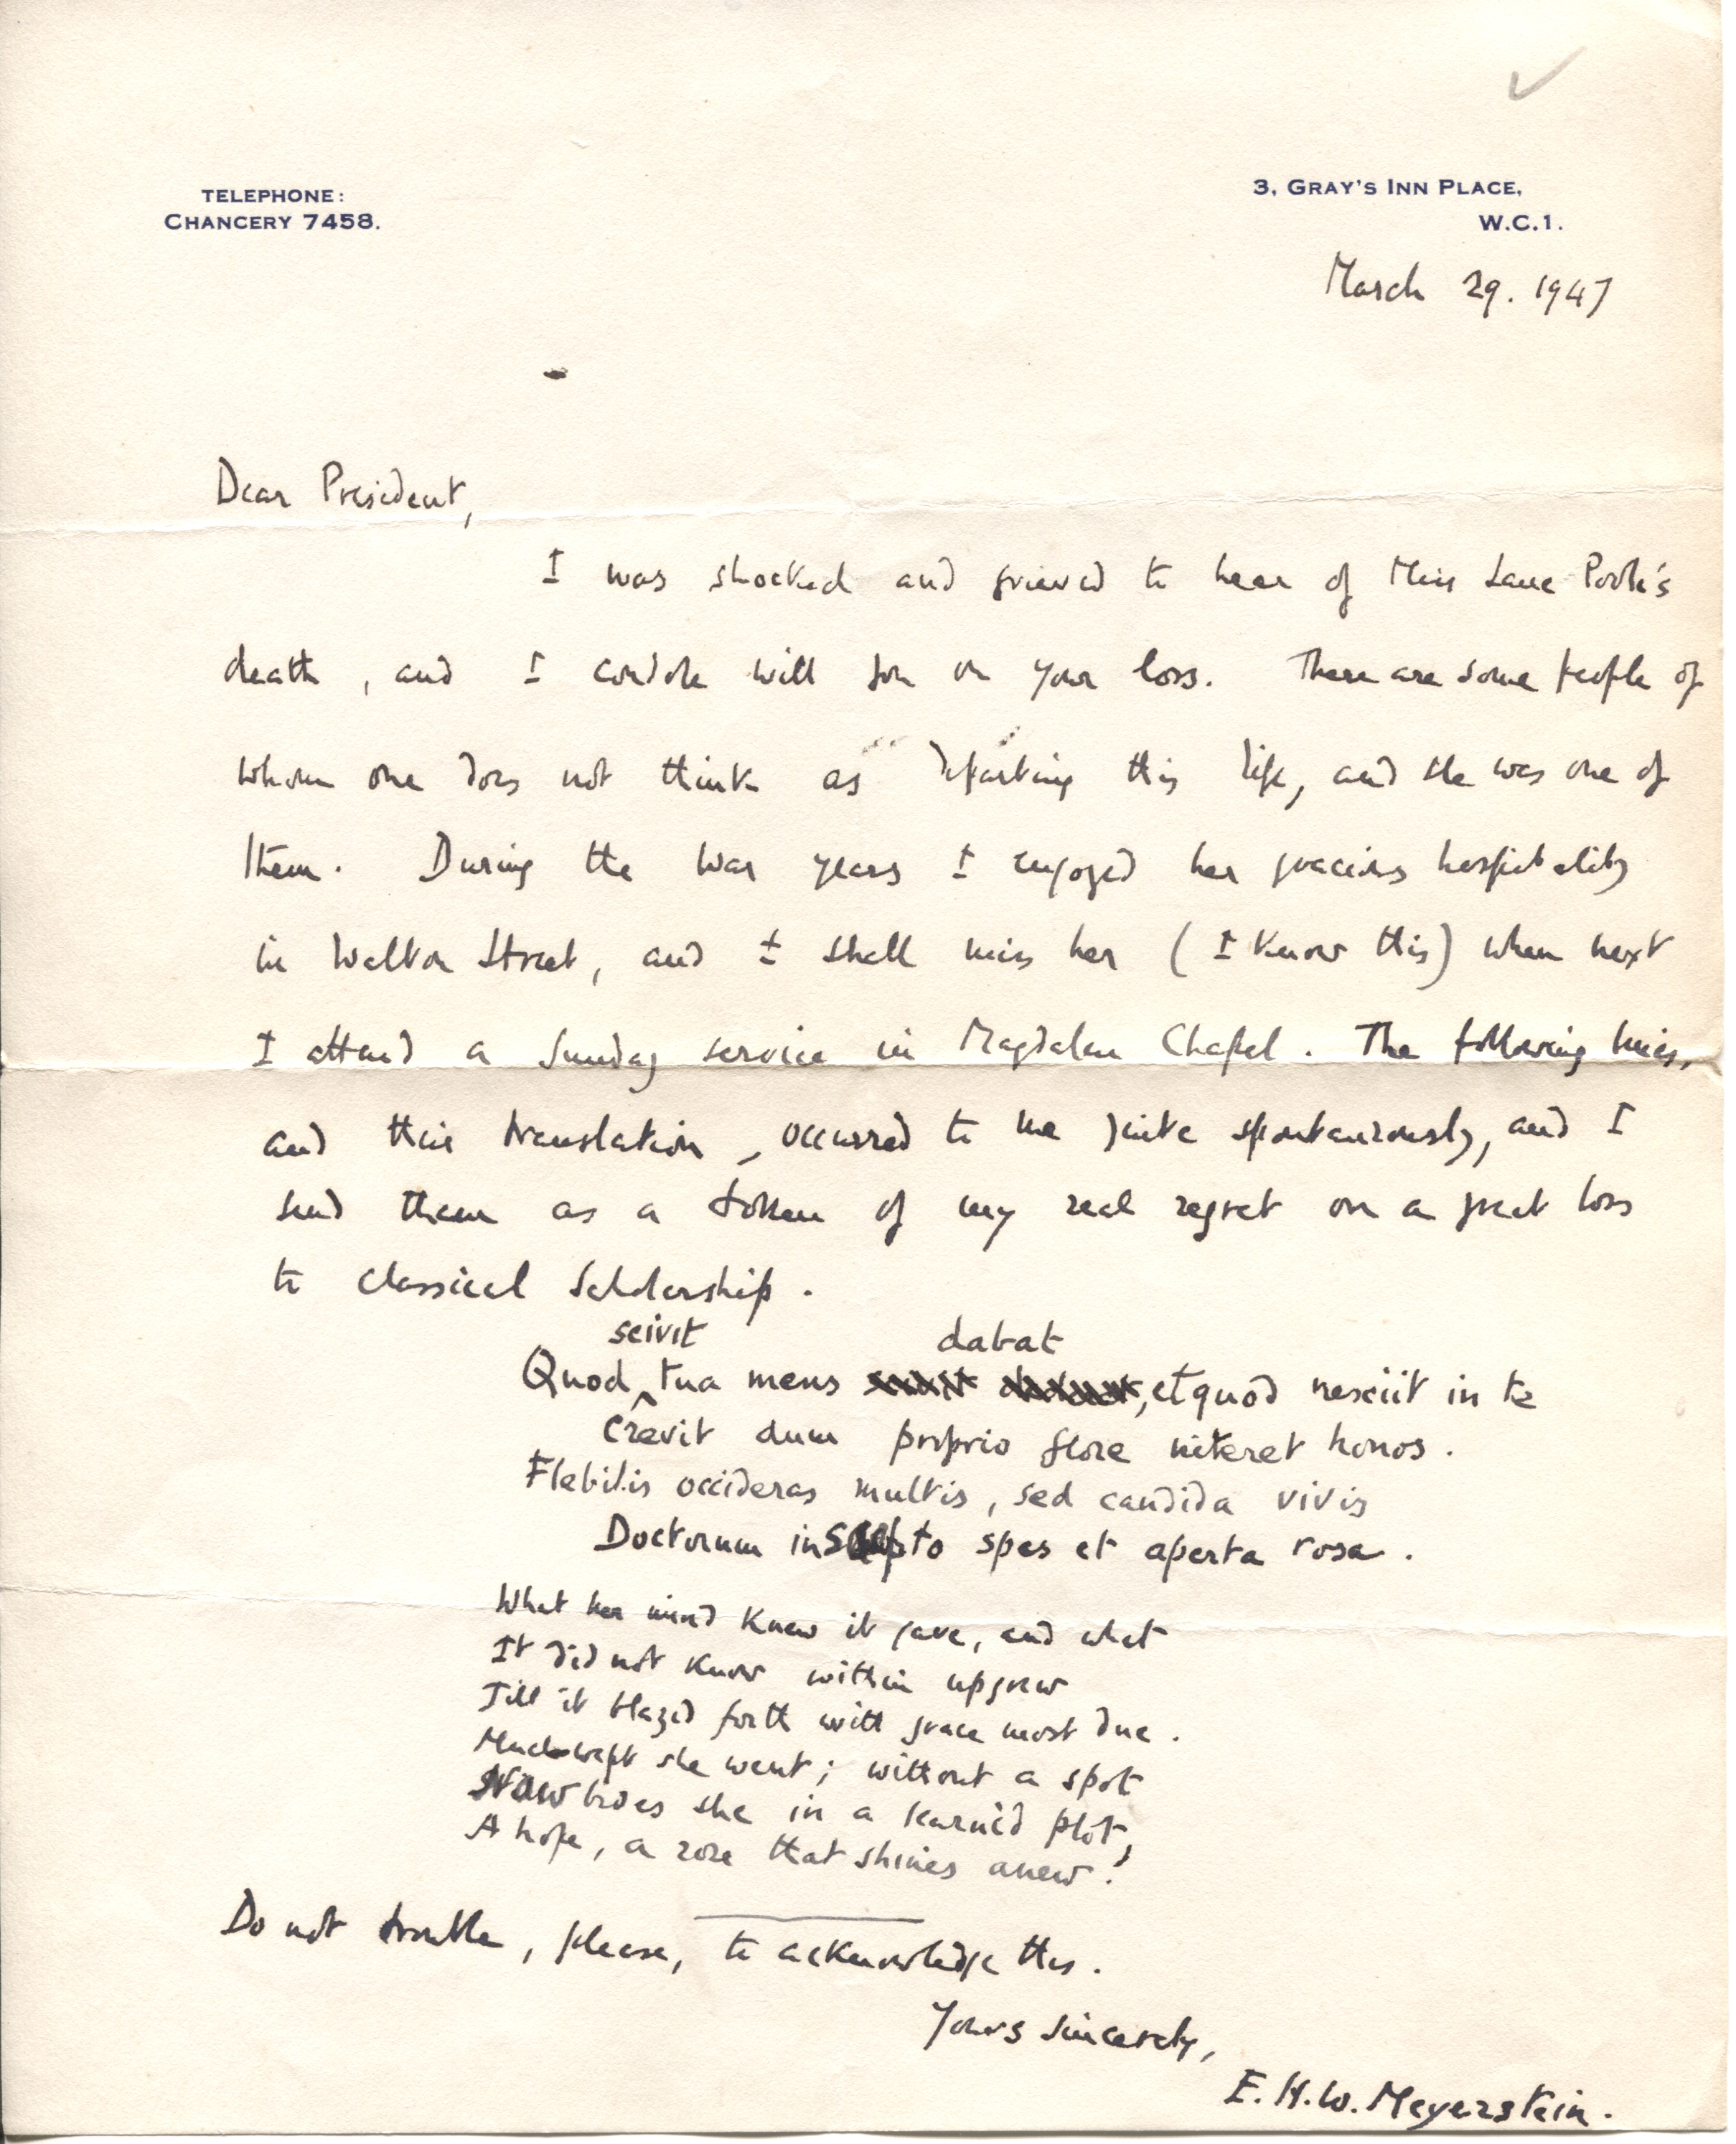 TELEPHONE:
CHANCERY 7458.
3, GRAY'S INN PLACE,
W.C.1.
March 29. 1947
Dear President,
I was shocked and grieved to hear of Miss Lane Poole's
death, and I condole with you on your loss. There are some people of
whom one does not think as departing this life, and she was one of
them. During the war years I enjoyed her gracious hospitality
in Walton Street, and I shall miss her (I know this) when next
I attend a Sunday service in Magdalen Chapel. The following lines,
and their translation, occurred to me quite spontaneously, and I
send them as a token of my real regret on a great loss
to classical Scholarship.
scivit dabat
Quod tua mens , et quod nesciit in te
Crevit dum proprio flore niteret honos.
Flebilis occideras multis, sed candida vivis
Doctorum in spes et aperta rosa.
What her mind knew it gave, and what
It did not know within upgrew
Till it blazed forth with grace most due.
Much-wept she went; without a spot
Now lives she in a learnèd plot,
A hope, a rose that shines anew!
Do not trouble, please, to acknowledge this.
Yours sincerely,
E.H.W. Meyerstein.